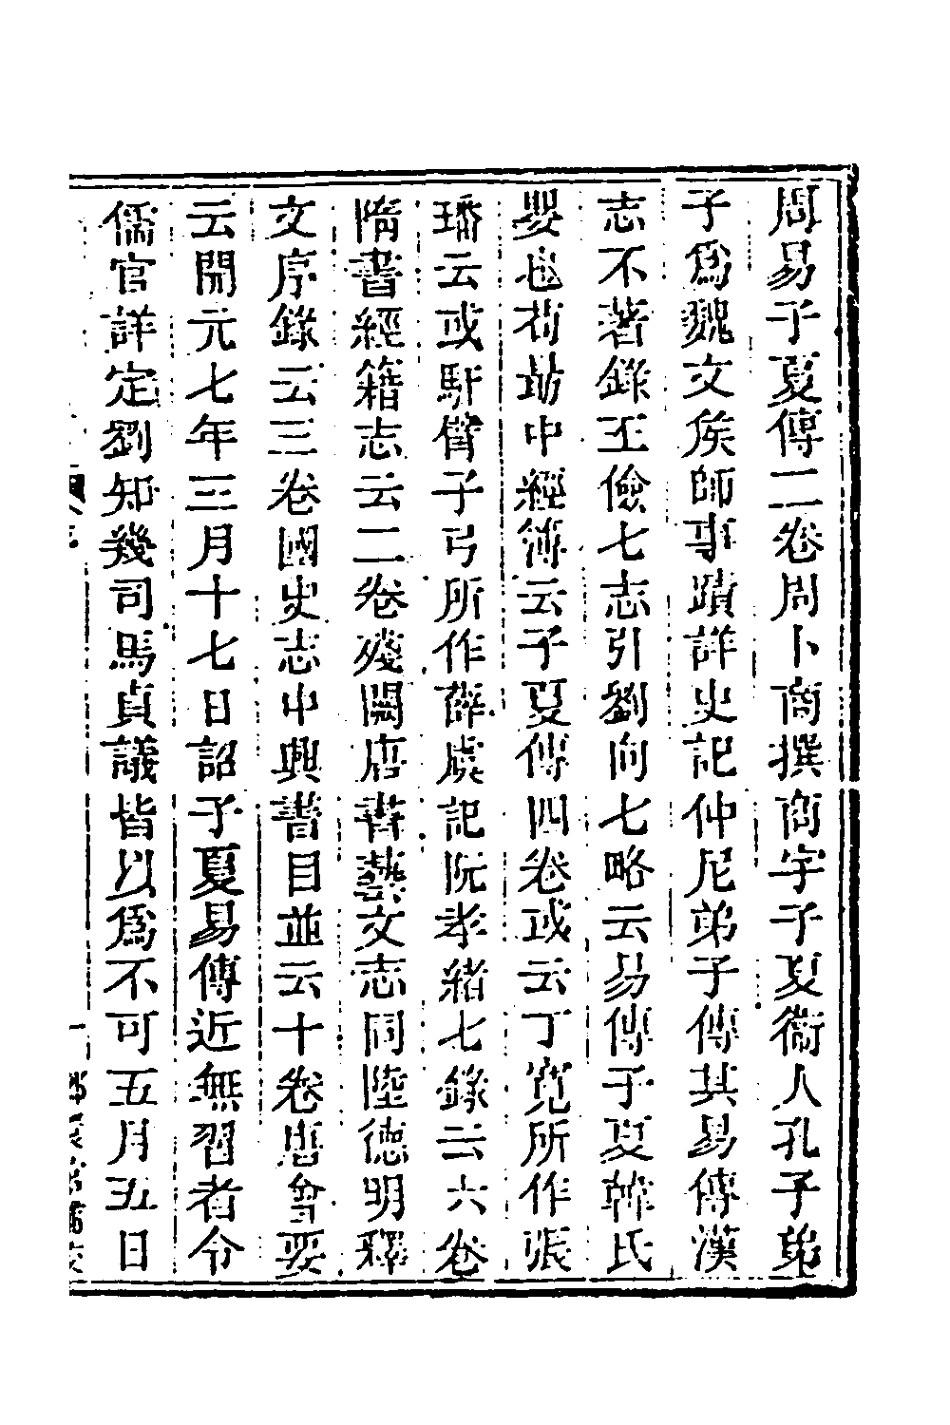 周易子夏傳二卷周卜商撰商字子夏衞人孔子弟
子爲魏文矦師事蹟詳史記仲尼弟子傳其易傳漢
志不著錄王儉七志引劉向七略云易傳子夏韓氏
嬰也荀勗中經簿云子夏傳四卷或云丁寛所作張
璠云或馯臂子弓所作薛虞記阮孝緒七錄云六卷
隋書經籍志云二卷殘闕唐書藝文志同陸德明釋
文序錄云三卷國史志中興書目並云十卷唐會要
云開元七年三月十七日詔子夏易傳近無習者令
儒官詳定劉知幾司馬貞議皆以爲不可五月五日